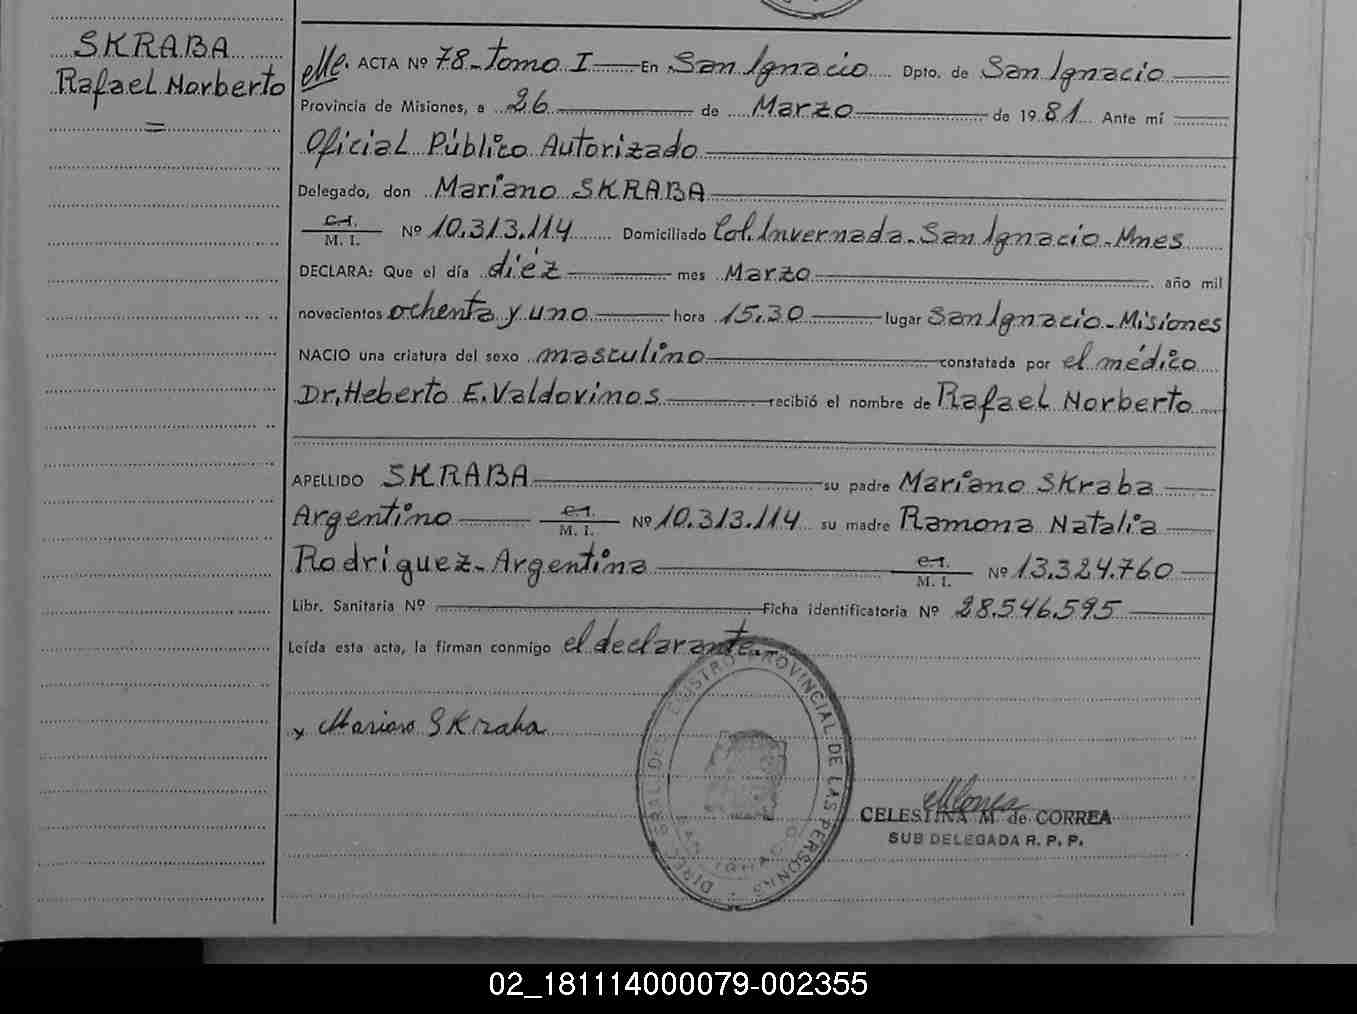 SKRABA
Rafael Norberto
=
ACTA Nº 78 - Tomo I En San Ignacio Dpto. de San Ignacio
Provincia de Misiones, a 26 de Marzo de 1981 Ante mí
Oficial Público Autorizado
Delegado, don Mariano SKRABA
C.I.
M. I. Nº 10.313.114 Domiciliado Col. Invernada - San Ignacio - Mnes
DECLARA: Que el día diéz mes Marzo año mil
novecientos ochenta y uno hora 15.30 lugar San Ignacio - Misiones
NACIO una criatura del sexo masculino constatada por el médico
Dr. Heberto E. Valdovinos recibió el nombre de Rafael Norberto
APELLIDO SKRABA su padre Mariano Skraba
Argentino C.I. M. I. Nº 10.313.114 su madre Ramona Natalia
Rodríguez - Argentina C.I. M. I. Nº 13.324.760
Libr. Sanitaria Nº Ficha identificatoria Nº 28.546.595
Leída esta acta, la firman conmigo el declarante.-
x Mariano SKraba
REGISTRO PROVINCIAL DE LAS PERSONAS
SAN IGNACIO
CELESTINA M. de CORREA
SUB DELEGADA R. P. P.
02_181114000079-002355